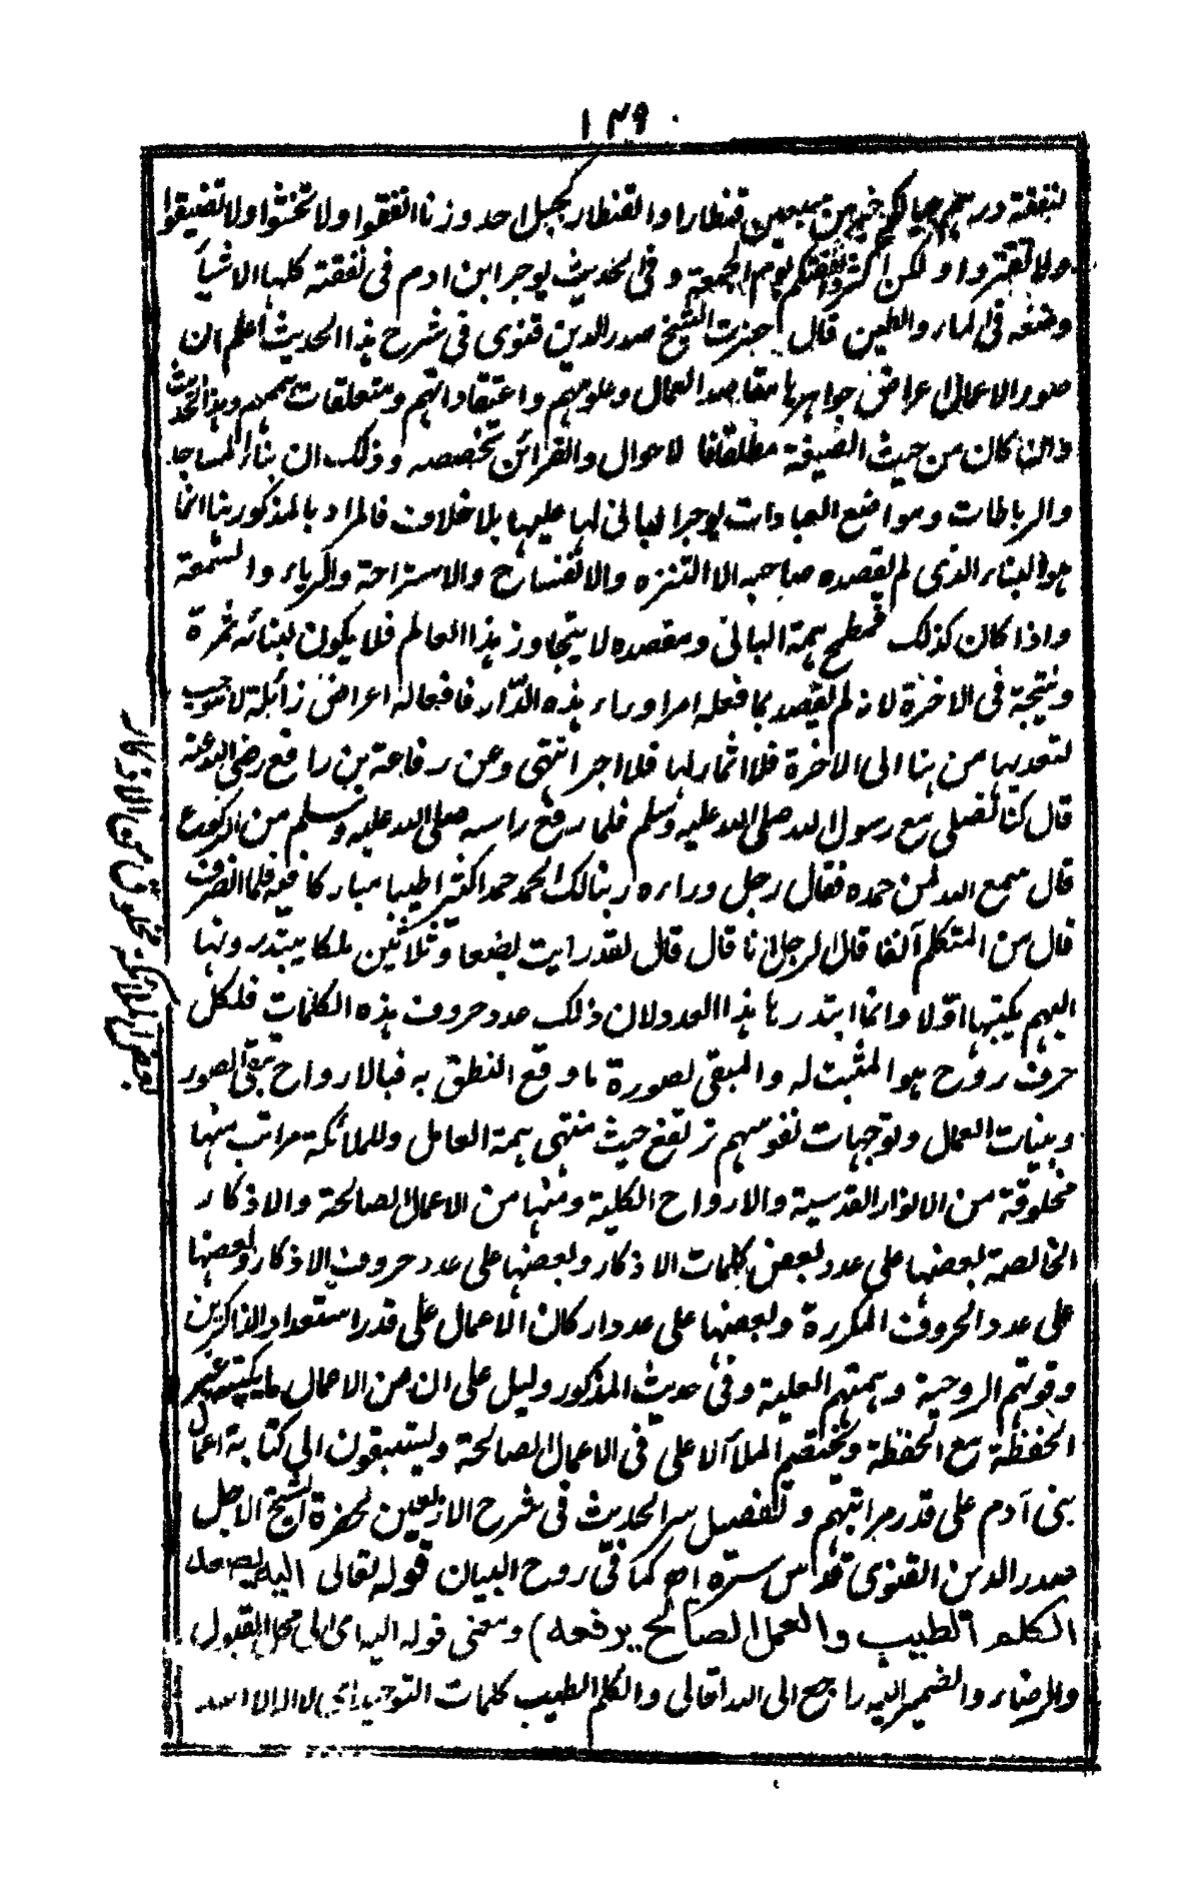 ١٤٩
لنفقة درهم عيالكم خير من سبعين قنطارا والقنطار كجبل احد وزنا انفقوا ولا تخشوا ولا تضيقوا
ولا تقتروا ولكن اكثروا نفقتكم يوم الجمعة وفى الحديث يوجر ابن ادم فى نفقته كلها الا شيأ
وضعه فى الماء والطين قال حضرت الشيخ صدر الدين قنوى فى شرح هذا الحديث اعلم ان
صور الاعمال اعراض جواهرها مقاصد العمال وعلومهم واعتقاداتهم ومتعلقات هممهم وهذا الحديث
وان كان من حيث الصيغة مطلقا فا لاحوال والقرائن تخصصه وذلك ان بناء المساجد
والرباطات ومواضع العبادات يوجر البانى لها عليها بلا خلاف فالمراد بالمذكور هنا انما
هو البناء الذى لم يقصده صاحبه الا التنزه والانفساح والاستراحة والرياء والسمعة
واذا كان كذلك فمطمح همة البانى ومقصده لا يتجاوز هذا العالم فلا يكون لبنائه ثمرة
ونتيجة فى الاخرة لانه لم يقصد بما فعله امرا وراء هذه الدار فافعاله اعراض زائلة لا موجب
لتعديها من هنا الى الاخرة فلا اثمار لها فلا اجر انتهى وعن رفاعة بن رافع رضى الله عنه
قال كنا نصلى مع رسول الله صلى الله عليه وسلم فلما رفع راسه صلى الله عليه وسلم من الركوع
قال سمع الله لمن حمده فقال رجل وراءه ربنا لك الحمد حمدا كثيرا طيبا مباركا فيه فلما انصرف
قال من المتكلم آنفا قال الرجل انا قال قال لقد رايت بضعا وثلاثين ملكا يبتدرونها
ايهم يكتبها اوّلا وانما ابتدرها هذا العدد لان ذلك عدد حروف هذه الكلمات فلكل
حرف روح هو المثبت له والمبقى لصورة ما وقع النطق به فبالارواح تبقى الصور
وبنيات العمال وتوجهات نفوسهم ترتفع حيث منتهى همة العامل وللملائكة مراتب منها
مخلوقة من الانوار القدسية والارواح الكلية ومنها من الاعمال الصالحة والاذكار
الخالصة بعضها على عدد بعض كلمات الاذكار وبعضها على عدد حروف الاذكار وبعضها
على عدد الحروف المكررة وبعضها على عدد اركان الاعمال على قدر استعداد الذاكرين
وقوتهم الروحية وهمتهم العلية وفى حديث المذكور دليل على ان من الاعمال ما يكتبه غير
الحفظة مع الحفظة ويختصم الملأ الاعلى فى الاعمال الصالحة ويستبقون الى كتابة اعمال
بنى آدم على قدر مراتبهم وتفصيل سر الحديث فى شرح الاربعين لحضرة الشيخ الاجل
صدر الدين القنوى قدس سره اه كما فى روح البيان قوله تعالى اليه يصعد
الكلم الطيب والعمل الصالح يرفعه) ومعنى قوله اليه اى الى محل القبول
والرضاء والضمير اليه راجع الى الله تعالى والكلم الطيب كلمات التوحيد اى لا اله الا الله
بعض الملائكة مخلوق من الاذكار